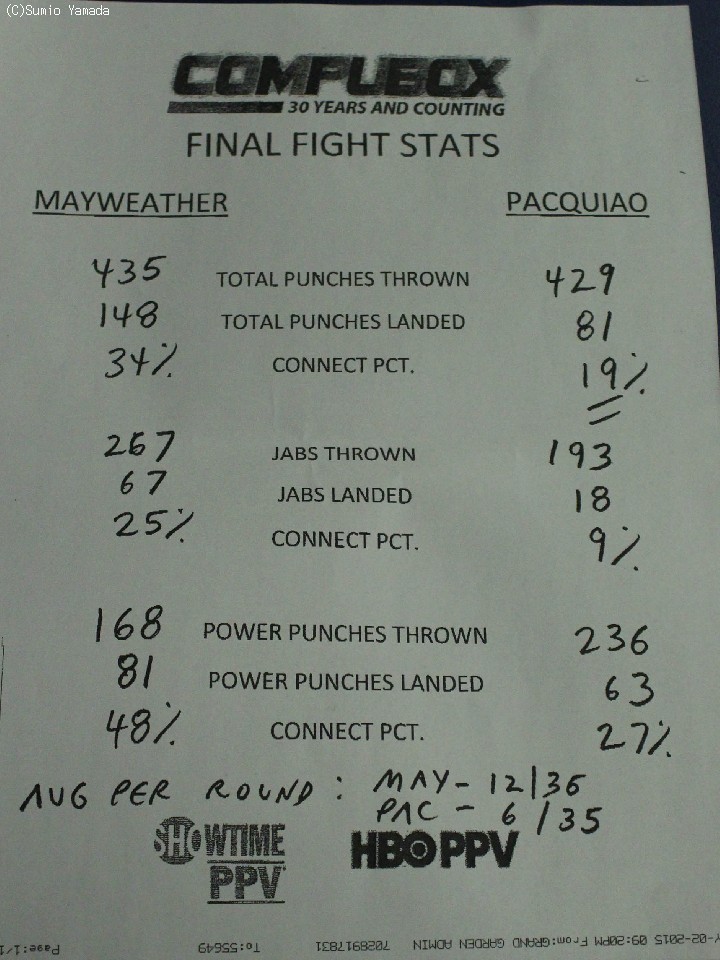 (C)Sumio Yamada
COMPUBOX
30 YEARS AND COUNTING
FINAL FIGHT STATS
MAYWEATHER PACQUIAO
435 TOTAL PUNCHES THROWN 429
148 TOTAL PUNCHES LANDED 81
34% CONNECT PCT. 19%
267 JABS THROWN 193
67 JABS LANDED 18
25% CONNECT PCT. 9%
168 POWER PUNCHES THROWN 236
81 POWER PUNCHES LANDED 63
48% CONNECT PCT. 27%
AVG PER ROUND: MAY - 12/36
PAC - 6/35
SHOWTIME PPV HBO PPV
Y-02-2015 09:20PM From:GRAND GARDEN ADMIN 7028917831 To:55649 Page:1/1